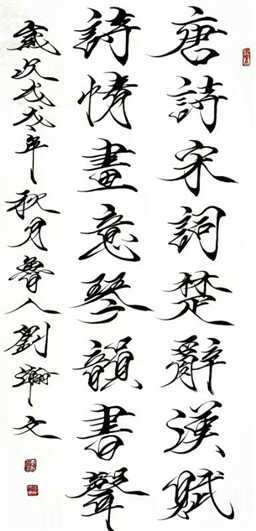 唐詩宋詞楚辭漢賦
詩情畫意琴韻書聲
歲次戊戌年秋月魯人劉瀚文